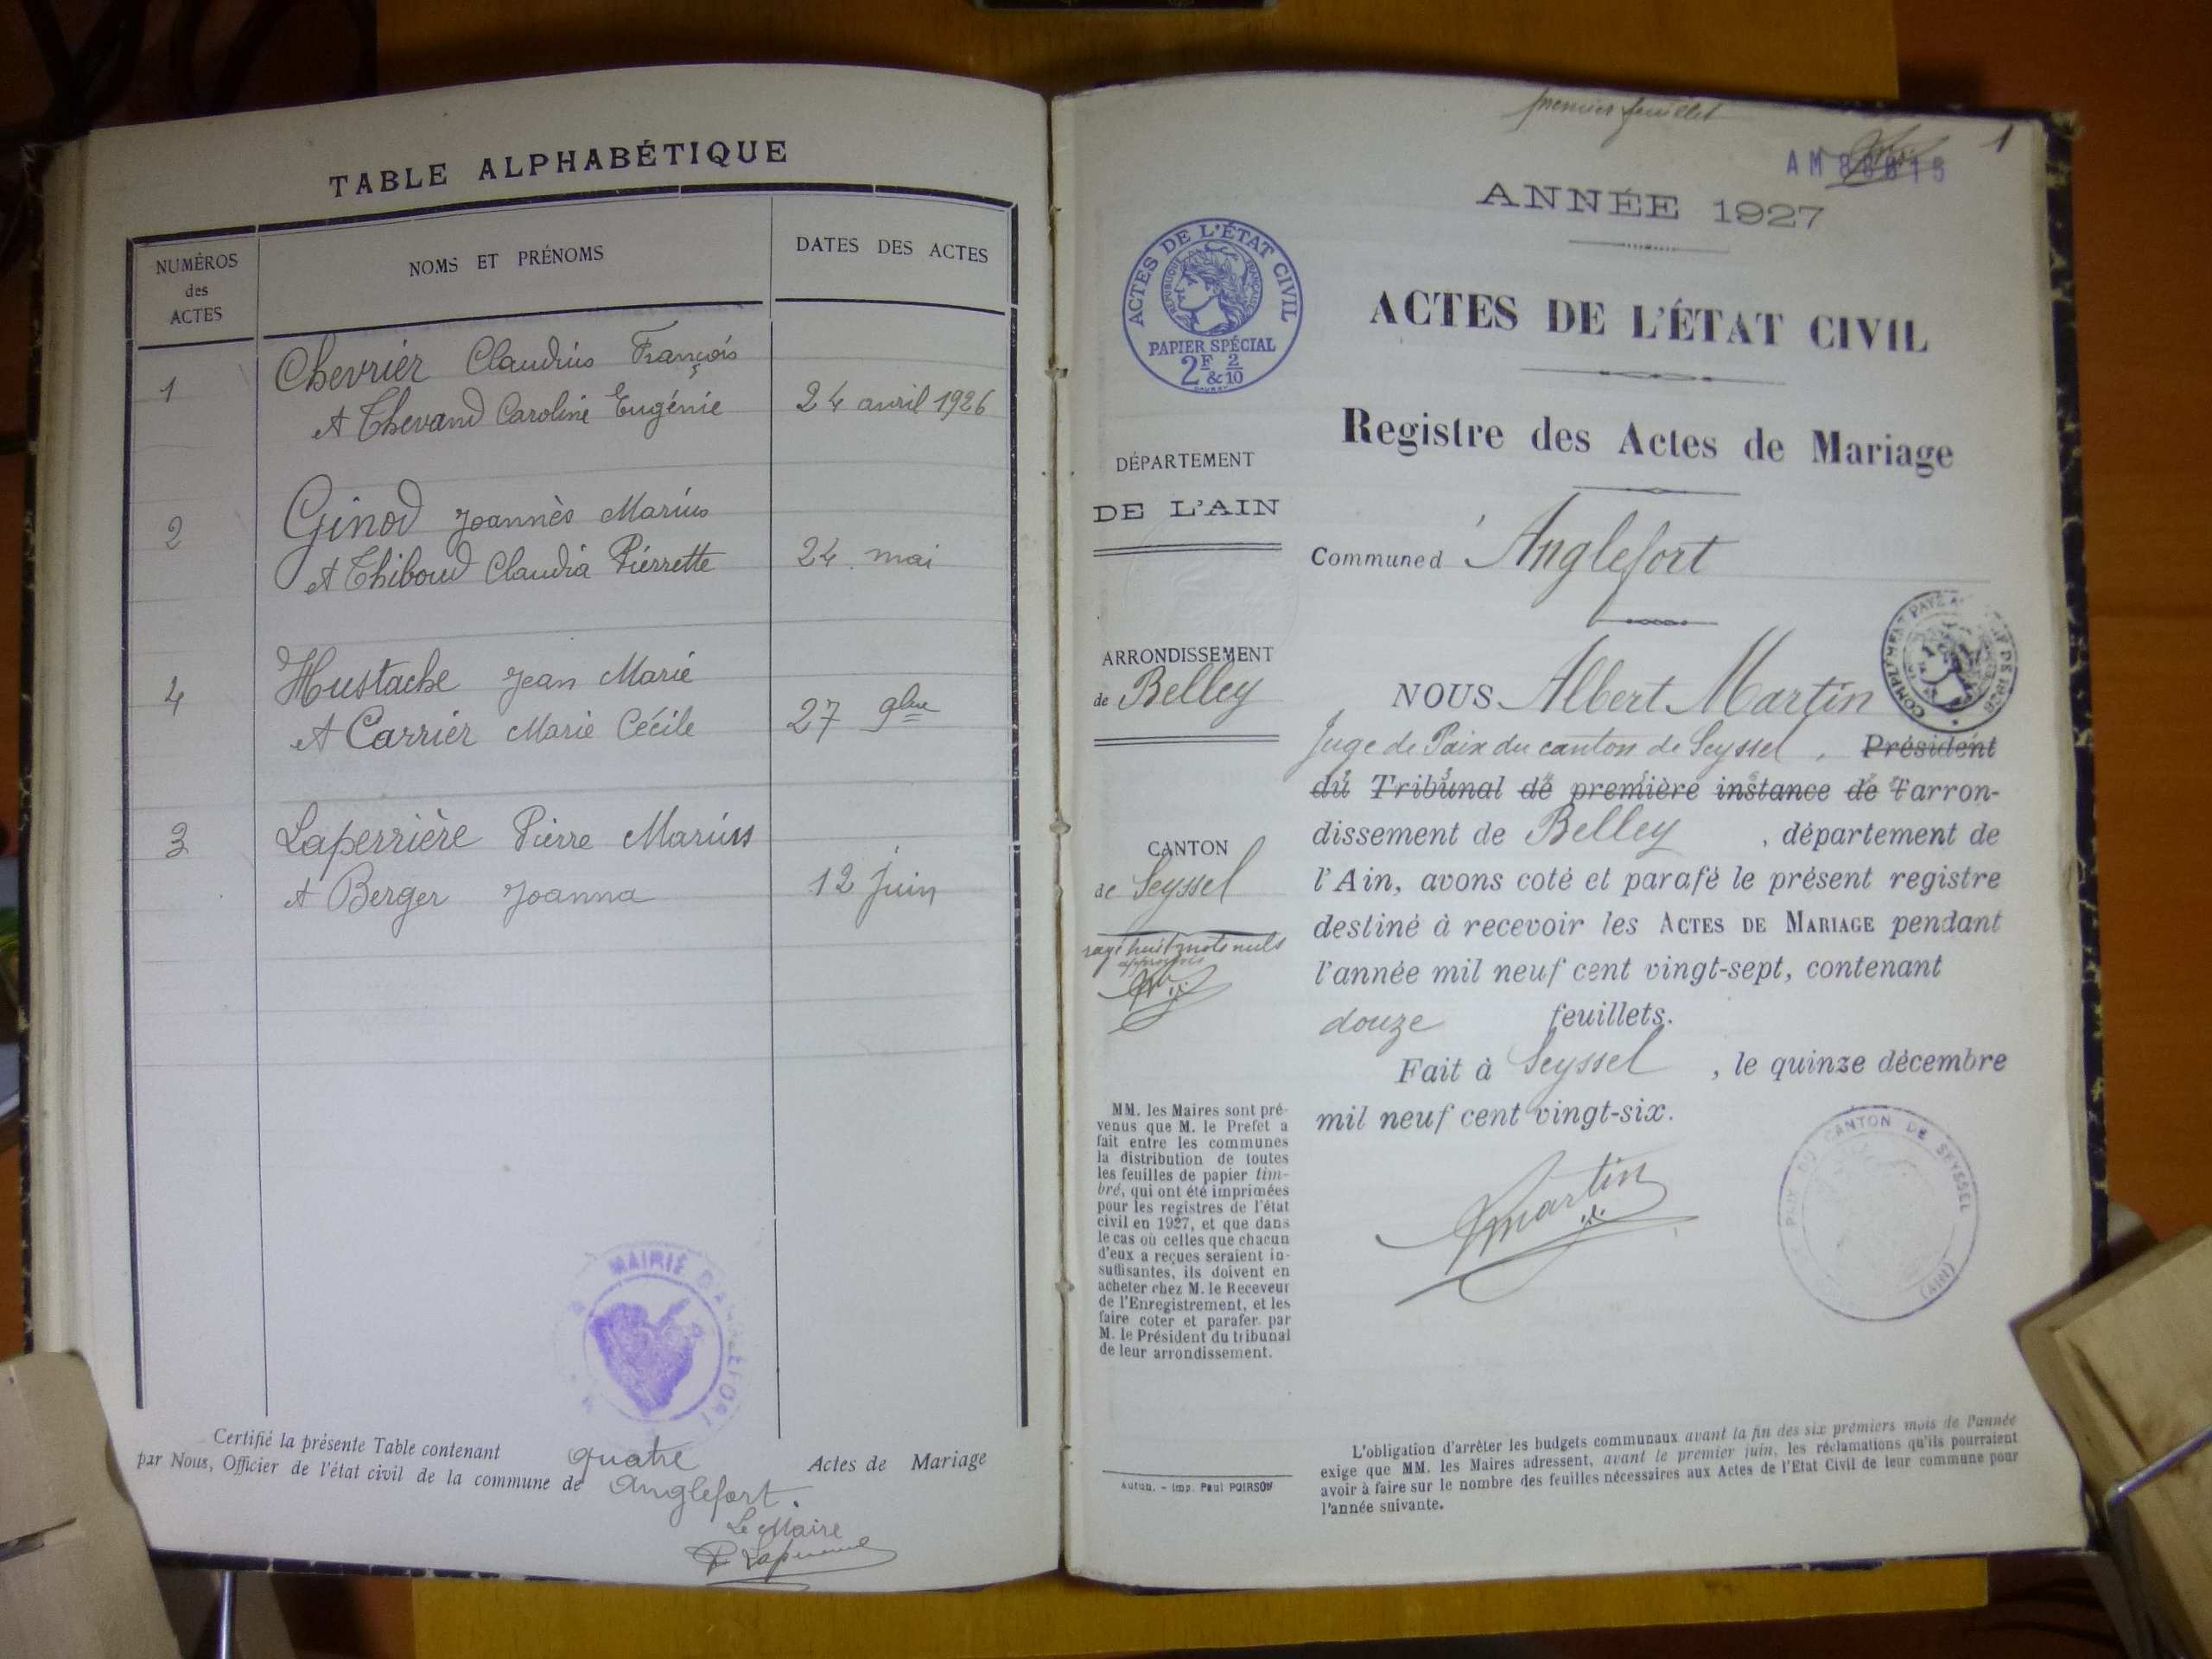 TABLE ALPHABÉTIQUE
NUMÉROS
des
ACTES
NOMS ET PRÉNOMS
DATES DES ACTES
1
Chevrier Claudius François
et Thevand Caroline Eugénie
24 avril 1926
2
Ginod Joannès Marius
et Thiboud Claudia Pierrette
24 mai
4
Mustache Jean Marie
et Carrier Marie Cécile
27 9bre
3
Laperrière Pierre Marius
et Berger Joanna
12 juin
MAIRIE D'ANGLEFORT
Certifié la présente Table contenant quatre Actes de Mariage
par Nous, Officier de l'état civil de la commune de Anglefort.
Le Maire
premier feuillet
1
ANNÉE 1927
ACTES DE L'ÉTAT CIVIL
RÉPUBLIQUE FRANÇAISE
PAPIER SPÉCIAL
2F & 2/10
ACTES DE L'ÉTAT CIVIL
Registre des Actes de Mariage
DÉPARTEMENT
DE L'AIN
Commune d'Anglefort
ARRONDISSEMENT
de Belley
CANTON
de Seyssel
rayé huit mots nuls
approuvés
NOUS Albert Martin
Juge de Paix du canton de Seyssel, Président
du Tribunal de première instance de l'arron-
dissement de Belley, département de
l'Ain, avons coté et parafé le présent registre
destiné à recevoir les ACTES DE MARIAGE pendant
l'année mil neuf cent vingt-sept, contenant
douze feuillets.
Fait à Seyssel, le quinze décembre
mil neuf cent vingt-six.
AMartin
PAIX DU CANTON DE SEYSSEL
(AIN)
MM. les Maires sont pré-
venus que M. le Prefet a
fait entre les communes
la distribution de toutes
les feuilles de papier tim-
bré, qui ont été imprimées
pour les registres de l'état
civil en 1927, et que dans
le cas où celles que chacun
d'eux a reçues seraient in-
suffisantes, ils doivent en
acheter chez M. le Receveur
de l'Enregistrement, et les
faire coter et parafer par
M. le Président du tribunal
de leur arrondissement.
Autun. - Imp. Paul POIRSON
L'obligation d'arrêter les budgets communaux avant la fin des six premiers mois de l'année
exige que MM. les Maires adressent, avant le premier juin, les réclamations qu'ils pourraient
avoir à faire sur le nombre des feuilles nécessaires aux Actes de l'Etat Civil de leur commune pour
l'année suivante.